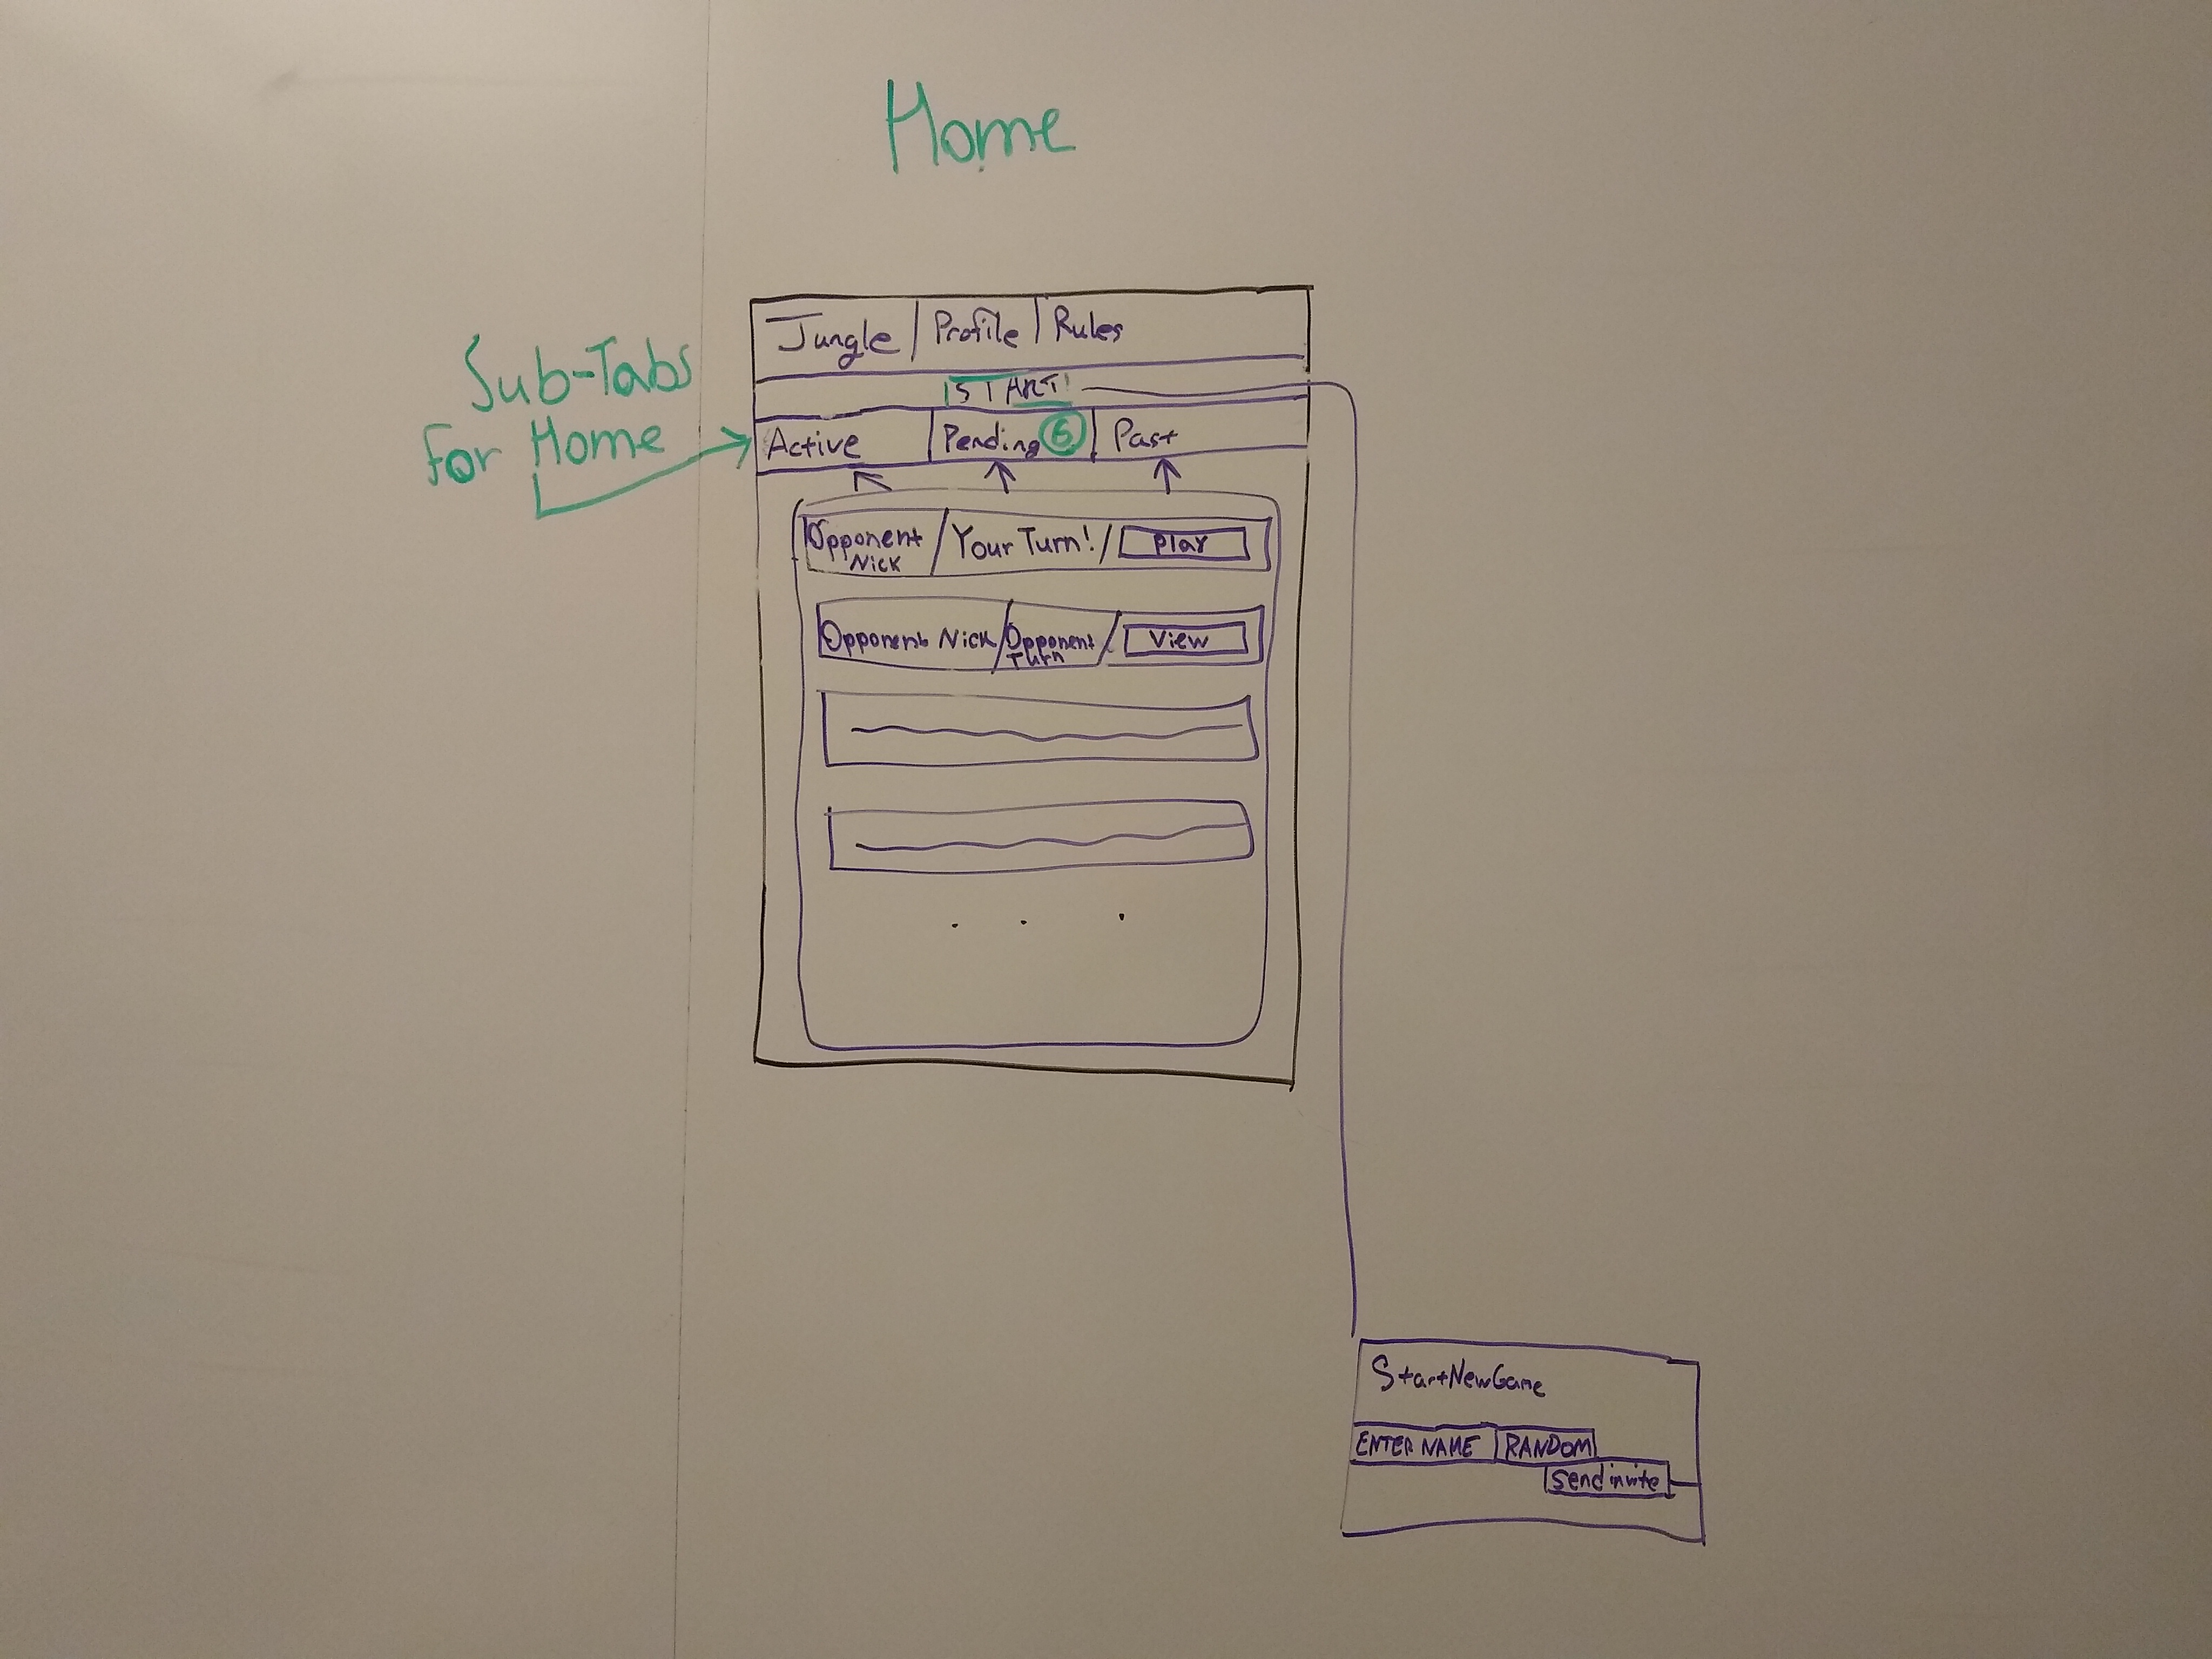 Home
Sub-Tabs
For Home
Jungle Profile Rules
START!
Active Pending 6 Past
Opponent
Nick
Your Turn!
Play
Opponent Nick
Opponent
Turn
View
. . .
StartNewGame
ENTER NAME RANDOM
send invite